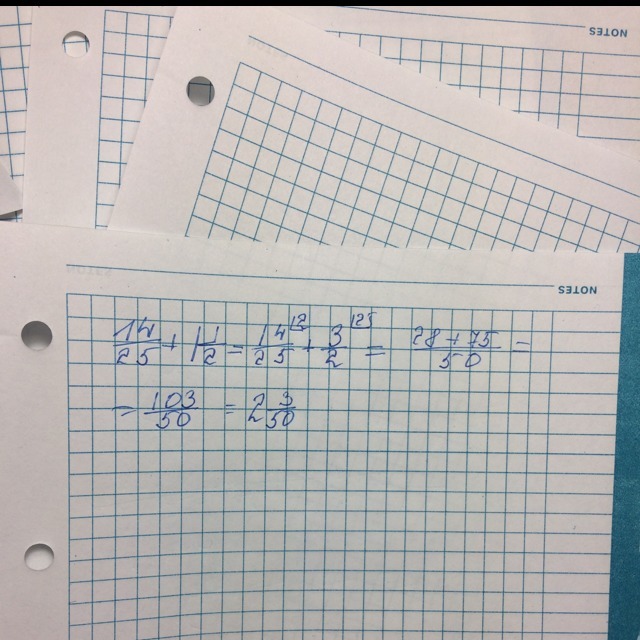 NOTES
NOTES
14/25 + 1 1/2 = 14/25 |2 + 3/2 |25 = 28+75/50 =
= 103/50 = 2 3/50